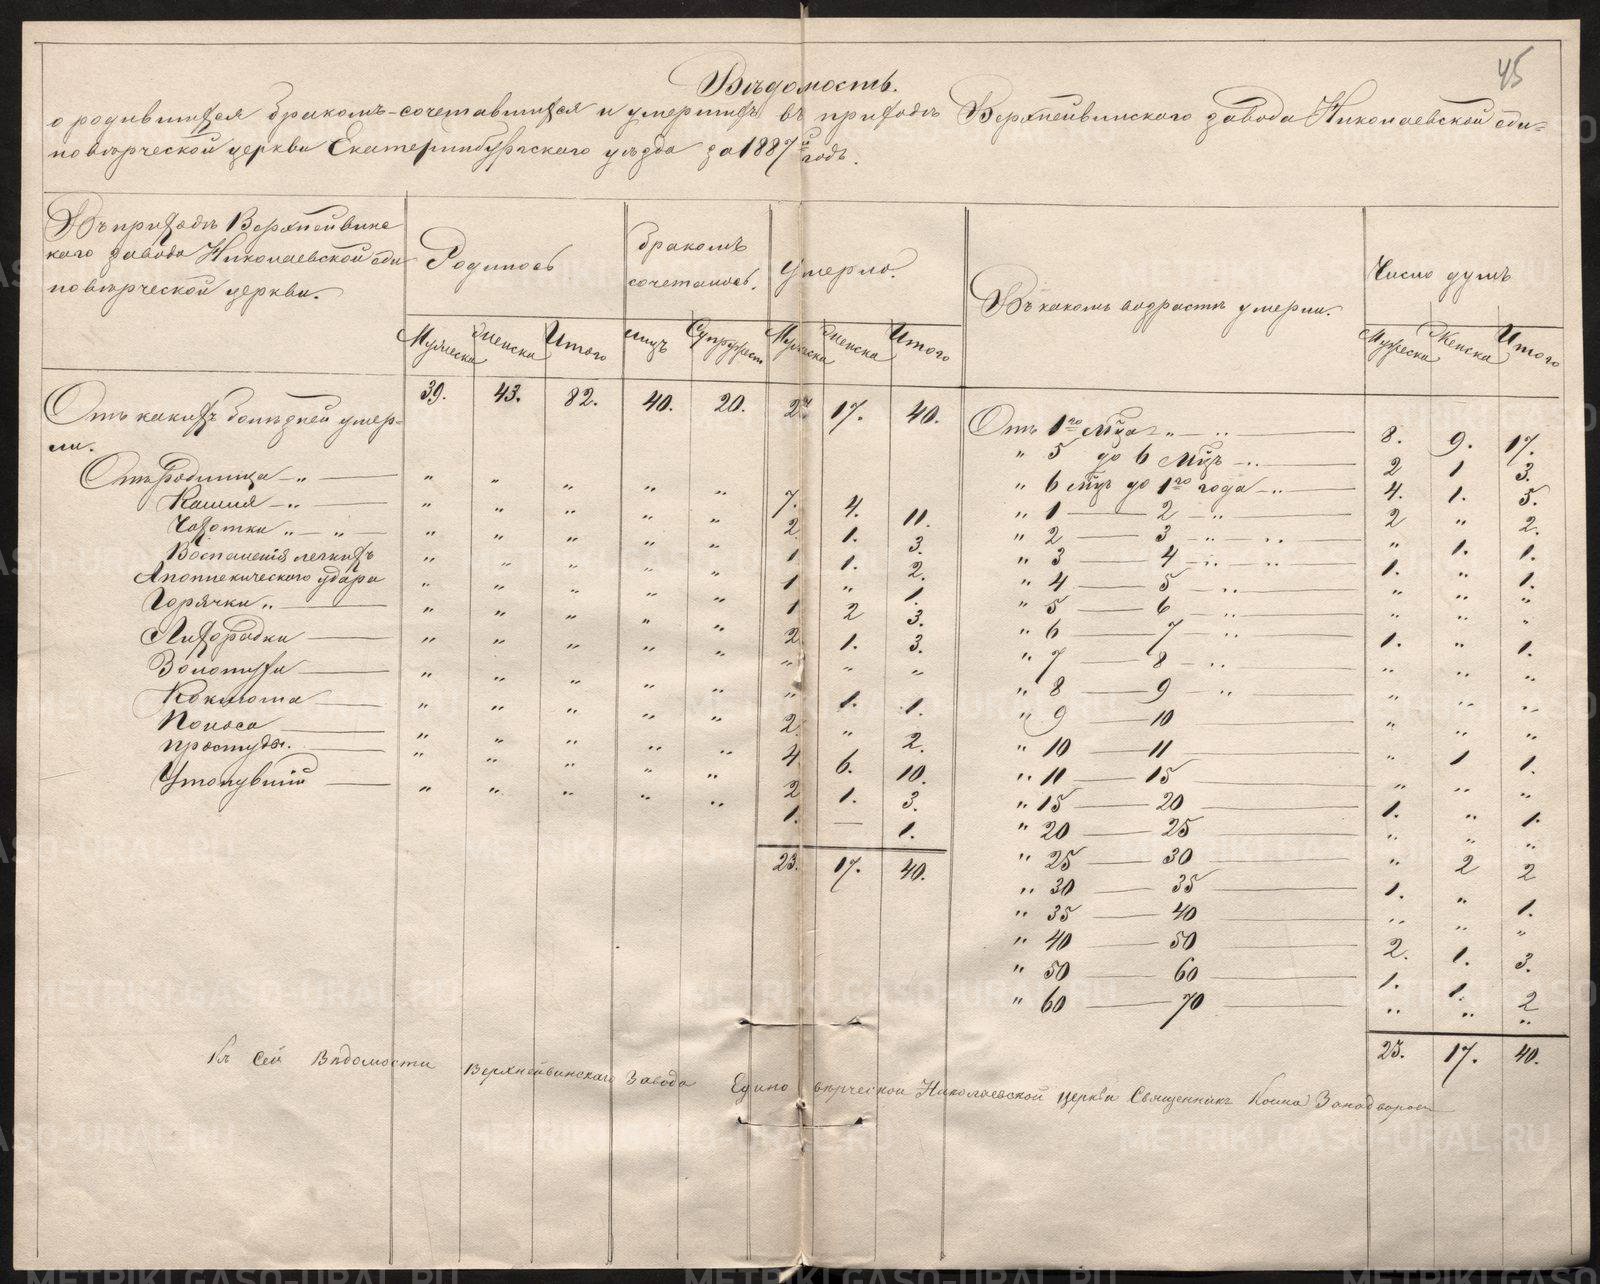 45
Вѣдомость.
о родившихся бракомъ-сочетавшихся и умершихъ въ приходѣ Верхнейвинскаго завода Николаевской еди=
новѣрческой церкви Екатеринбургскаго уѣзда за 1887й годъ.
Въ приходѣ Верхнейвинс
каго завода Николаевской еди
новѣрческой церкви.
Родилось
Бракомъ
сочеталось.
Умерло.
Въ какомъ возрастѣ умерли.
Число душъ
Мужеска Женска Итого лицъ Супружест Мужеска Женска Итого Мужеска Женска Итого
39. 43. 82. 40. 20. 23 17. 40.
Отъ какихъ болѣзней умер=
ли.
Отъ Родимца „ „ „ „ „ „ 7. 4. 11.
Кашля „ „ „ „ „ „ 2 1. 3.
Чахотки „ „ „ „ „ „ „ 1 1. 2.
Воспаленія легкихъ „ „ „ „ „ 1 „ 1.
Апоплекическаго удара „ „ „ „ „ 1 2 3.
Горячки „ „ „ „ „ „ 2 1. 3.
Лихорадки „ „ „ „ „ „ „ „
Золотухи „ „ „ „ „ „ 1. 1.
Коклюша „ „ „ „ „ 2 „ 2.
Поноса „ „ „ „ „ 4. 6. 10.
Простуды. „ „ „ „ „ 2 1. 3.
Утонувшій „ „ „ „ „ 1. — 1.
23. 17. 40.
Отъ 1го мца „ „ 8. 9. 17.
„ 5 до 6 Мцъ „ 2 1 3.
„ 6 мцъ до 1го года „ 4. 1. 5.
„ 1 — 2 „ 2 „ 2.
„ 2 — 3 „ „ „ 1. 1.
„ 3 — 4 „ „ 1. „ 1.
„ 4 — 5 „ „ „ „
„ 5 — 6 „ „ „ „
„ 6 — 7 „ 1. „ 1.
„ 7 — 8 „ „ „ „
„ 8 — 9 „ „ „ „
„ 9 — 10 „ „ „
„ 10 — 11 „ 1 1.
„ 11 — 15 „ „ „
„ 15 — 20 1. „ 1.
„ 20 — 25 „ „ „
„ 25 — 30 „ 2 2
„ 30 — 35 1. „ 1.
„ 35 — 40 „ „ „
„ 40 — 50 2. 1. 3.
„ 50 — 60 1. 1. 2
„ 60 — 70 „ „ „
23. 17. 40.
Къ сей Вѣдомости Верхнейвинскаго Завода Единовѣрческой Николаевской церкви Священникъ Косма
METRIKI.GASO-URAL.RU